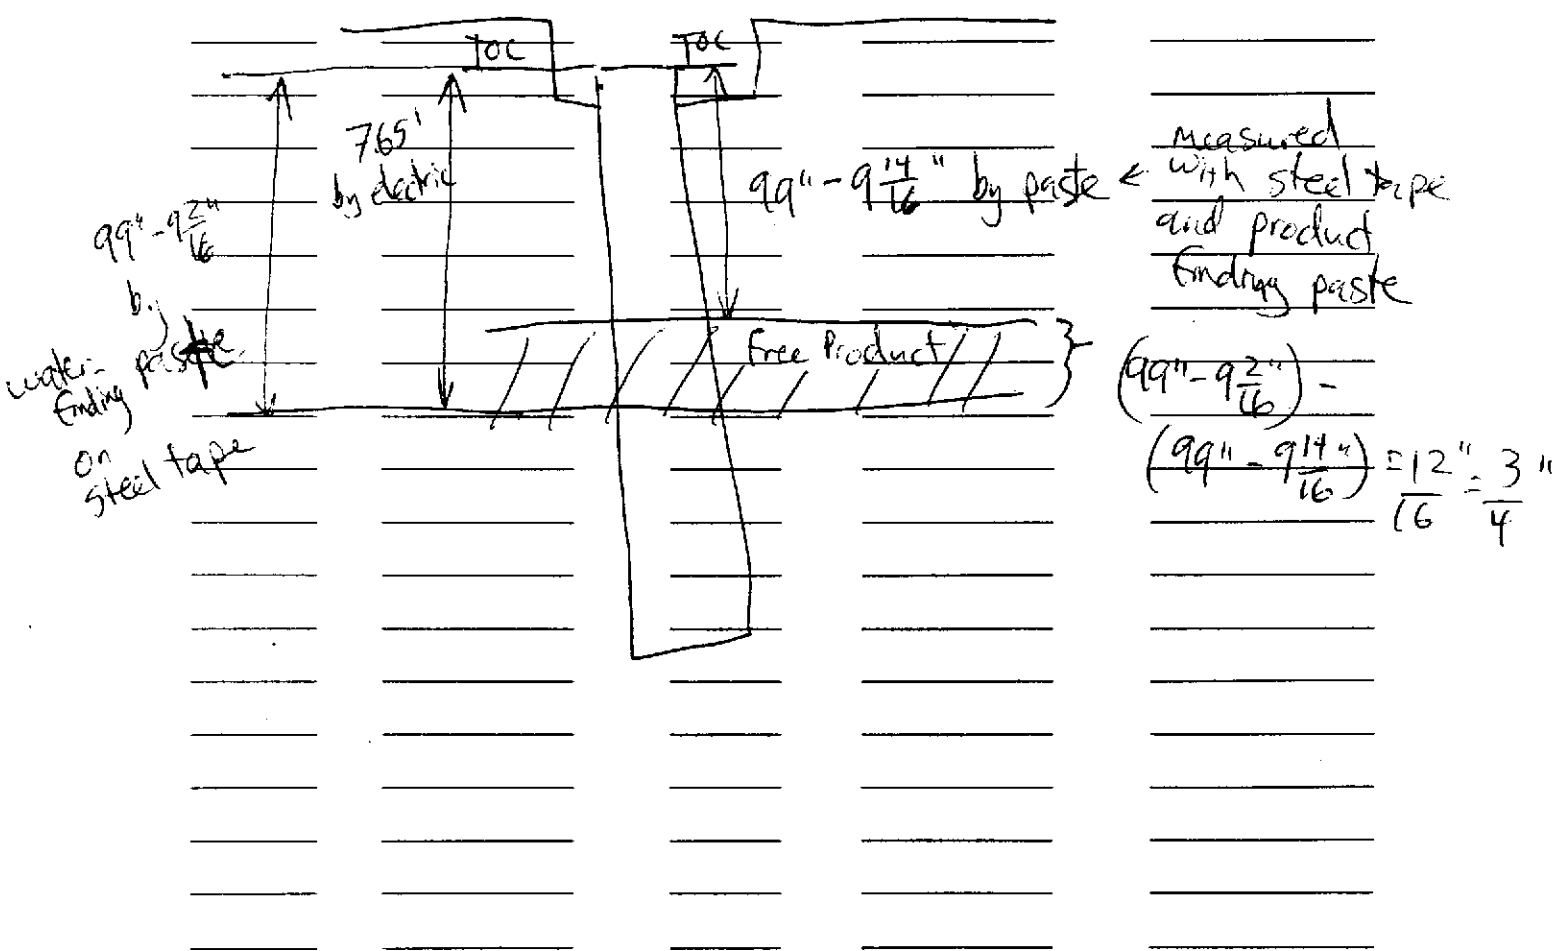 TOC
TOC
7.65'
by electric
99" - 9 2/16"
by
water-
finding paste
on
steel tape
99" - 9 14/16" by paste ←
measured
with steel tape
and product
finding paste
Free Product
(99" - 9 2/16") -
(99" - 9 14/16") = 12/16" = 3/4"